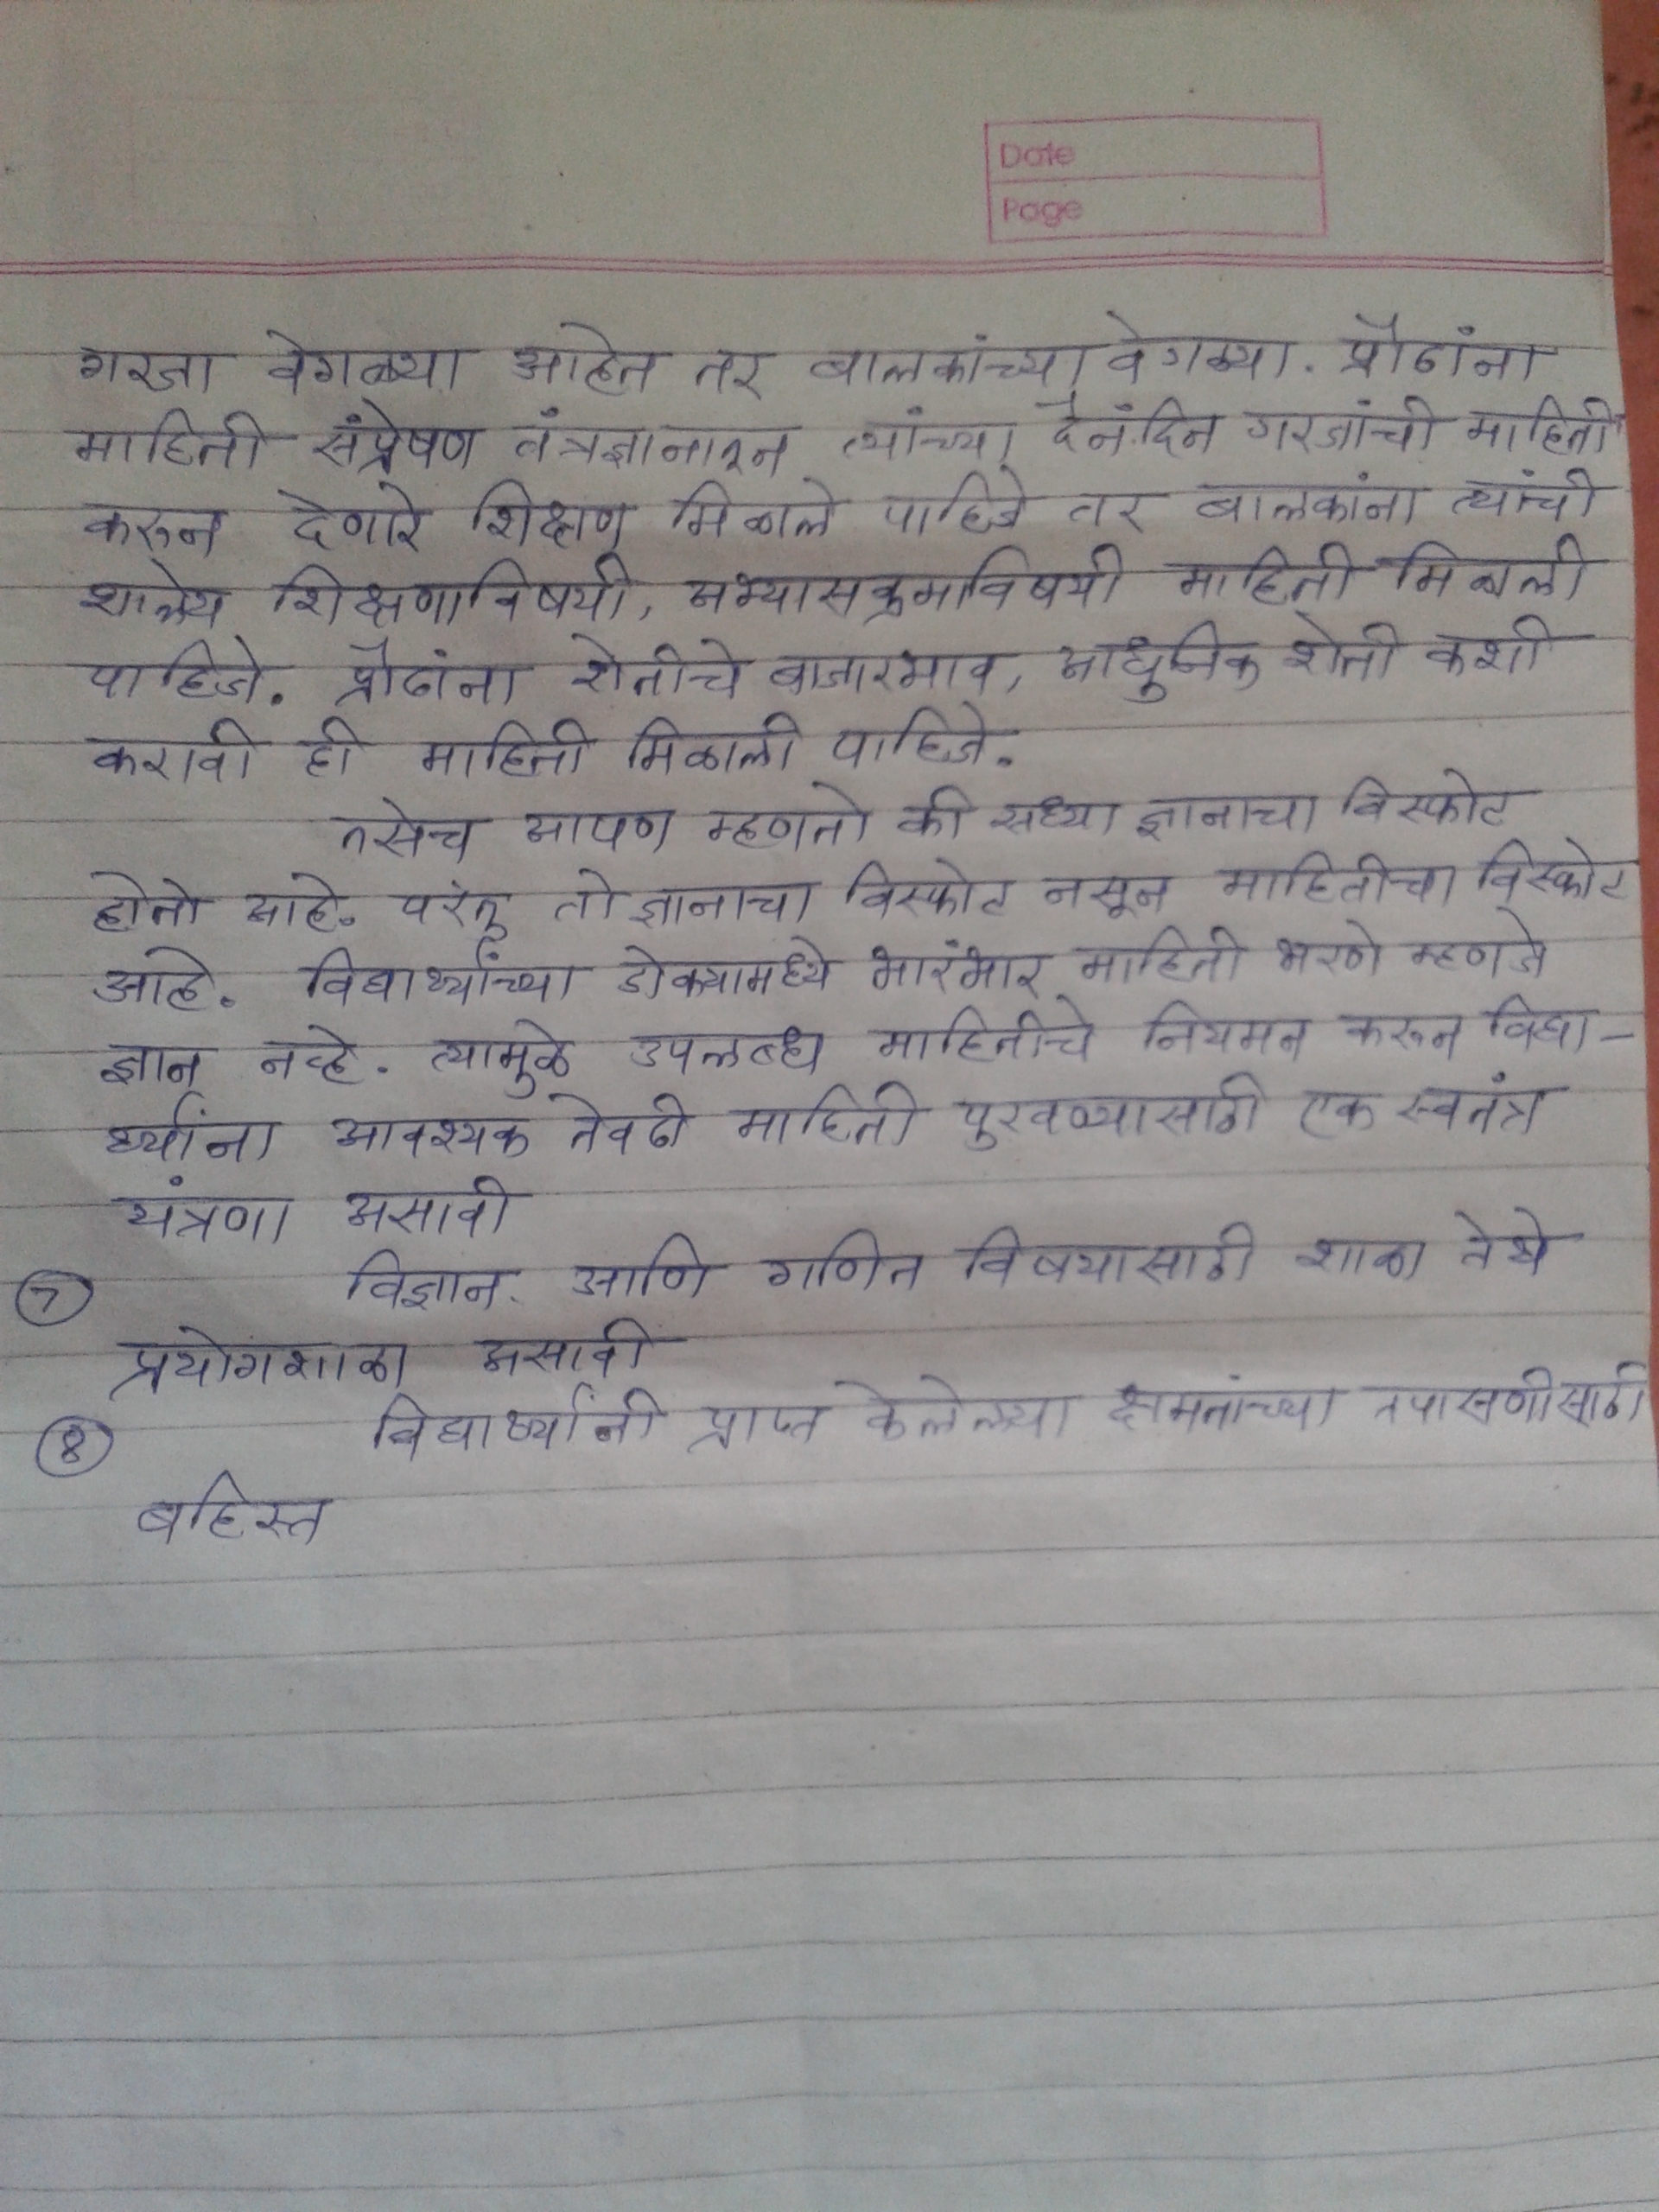 Date
Page
गरजा वेगळ्या आहेत तर बालकांच्या वेगळ्या. प्रौढांना
माहिती संप्रेषण तंत्रज्ञानातून त्यांच्या दैनंदिन गरजांची माहिती
करून देणारे शिक्षण मिळाले पाहिजे तर बालकांना त्यांची
शालेय शिक्षणाविषयी, अभ्यासक्रमाविषयी माहिती मिळाली
पाहिजे. प्रौढांना शेतीचे बाजारभाव, आधुनिक शेती कशी
करावी ही माहिती मिळाली पाहिजे.
तसेच आपण म्हणतो की सध्या ज्ञानाचा विस्फोट
होतो आहे. परंतु तो ज्ञानाचा विस्फोट नसून माहितीचा विस्फोट
आहे. विद्यार्थ्यांच्या डोक्यामध्ये भारंभार माहिती भरणे म्हणजे
ज्ञान नव्हे. त्यामुळे उपलब्ध माहितीचे नियमन करून विद्या-
र्थ्यांना आवश्यक तेवढी माहिती पुरवण्यासाठी एक स्वतंत्र
यंत्रणा असावी
7 विज्ञान. आणि गणित विषयासाठी शाळा तेथे
प्रयोगशाळा असावी
8 विद्यार्थ्यांनी प्राप्त केलेल्या क्षमतांच्या तपासणीसाठी
बहिस्त